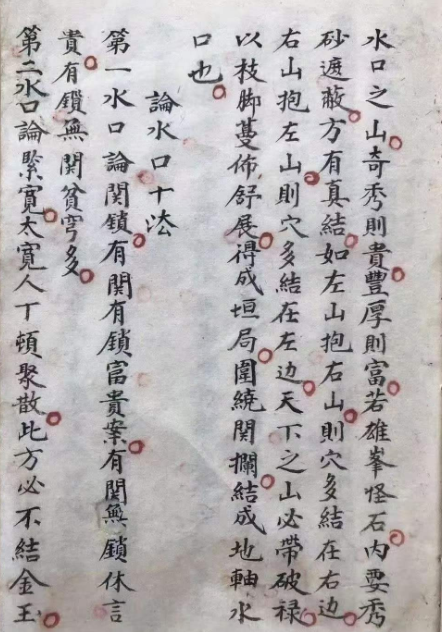 水口之山奇秀則貴豐厚則富若雄峯怪石內要秀
砂遮蔽方有真結如左山抱右山則穴多結在右边
右山抱左山則穴多結在左边天下之山必帶破祿
以枝脚蔓佈舒展得成垣局圍繞関攔結成地軸水
口也
論水口十法
第一水口論関鎖有関有鎖富貴案有関無鎖休言
貴有鎖無関貧穷多
第二水口論緊寬太寬人丁頓聚散此方必不結金玉